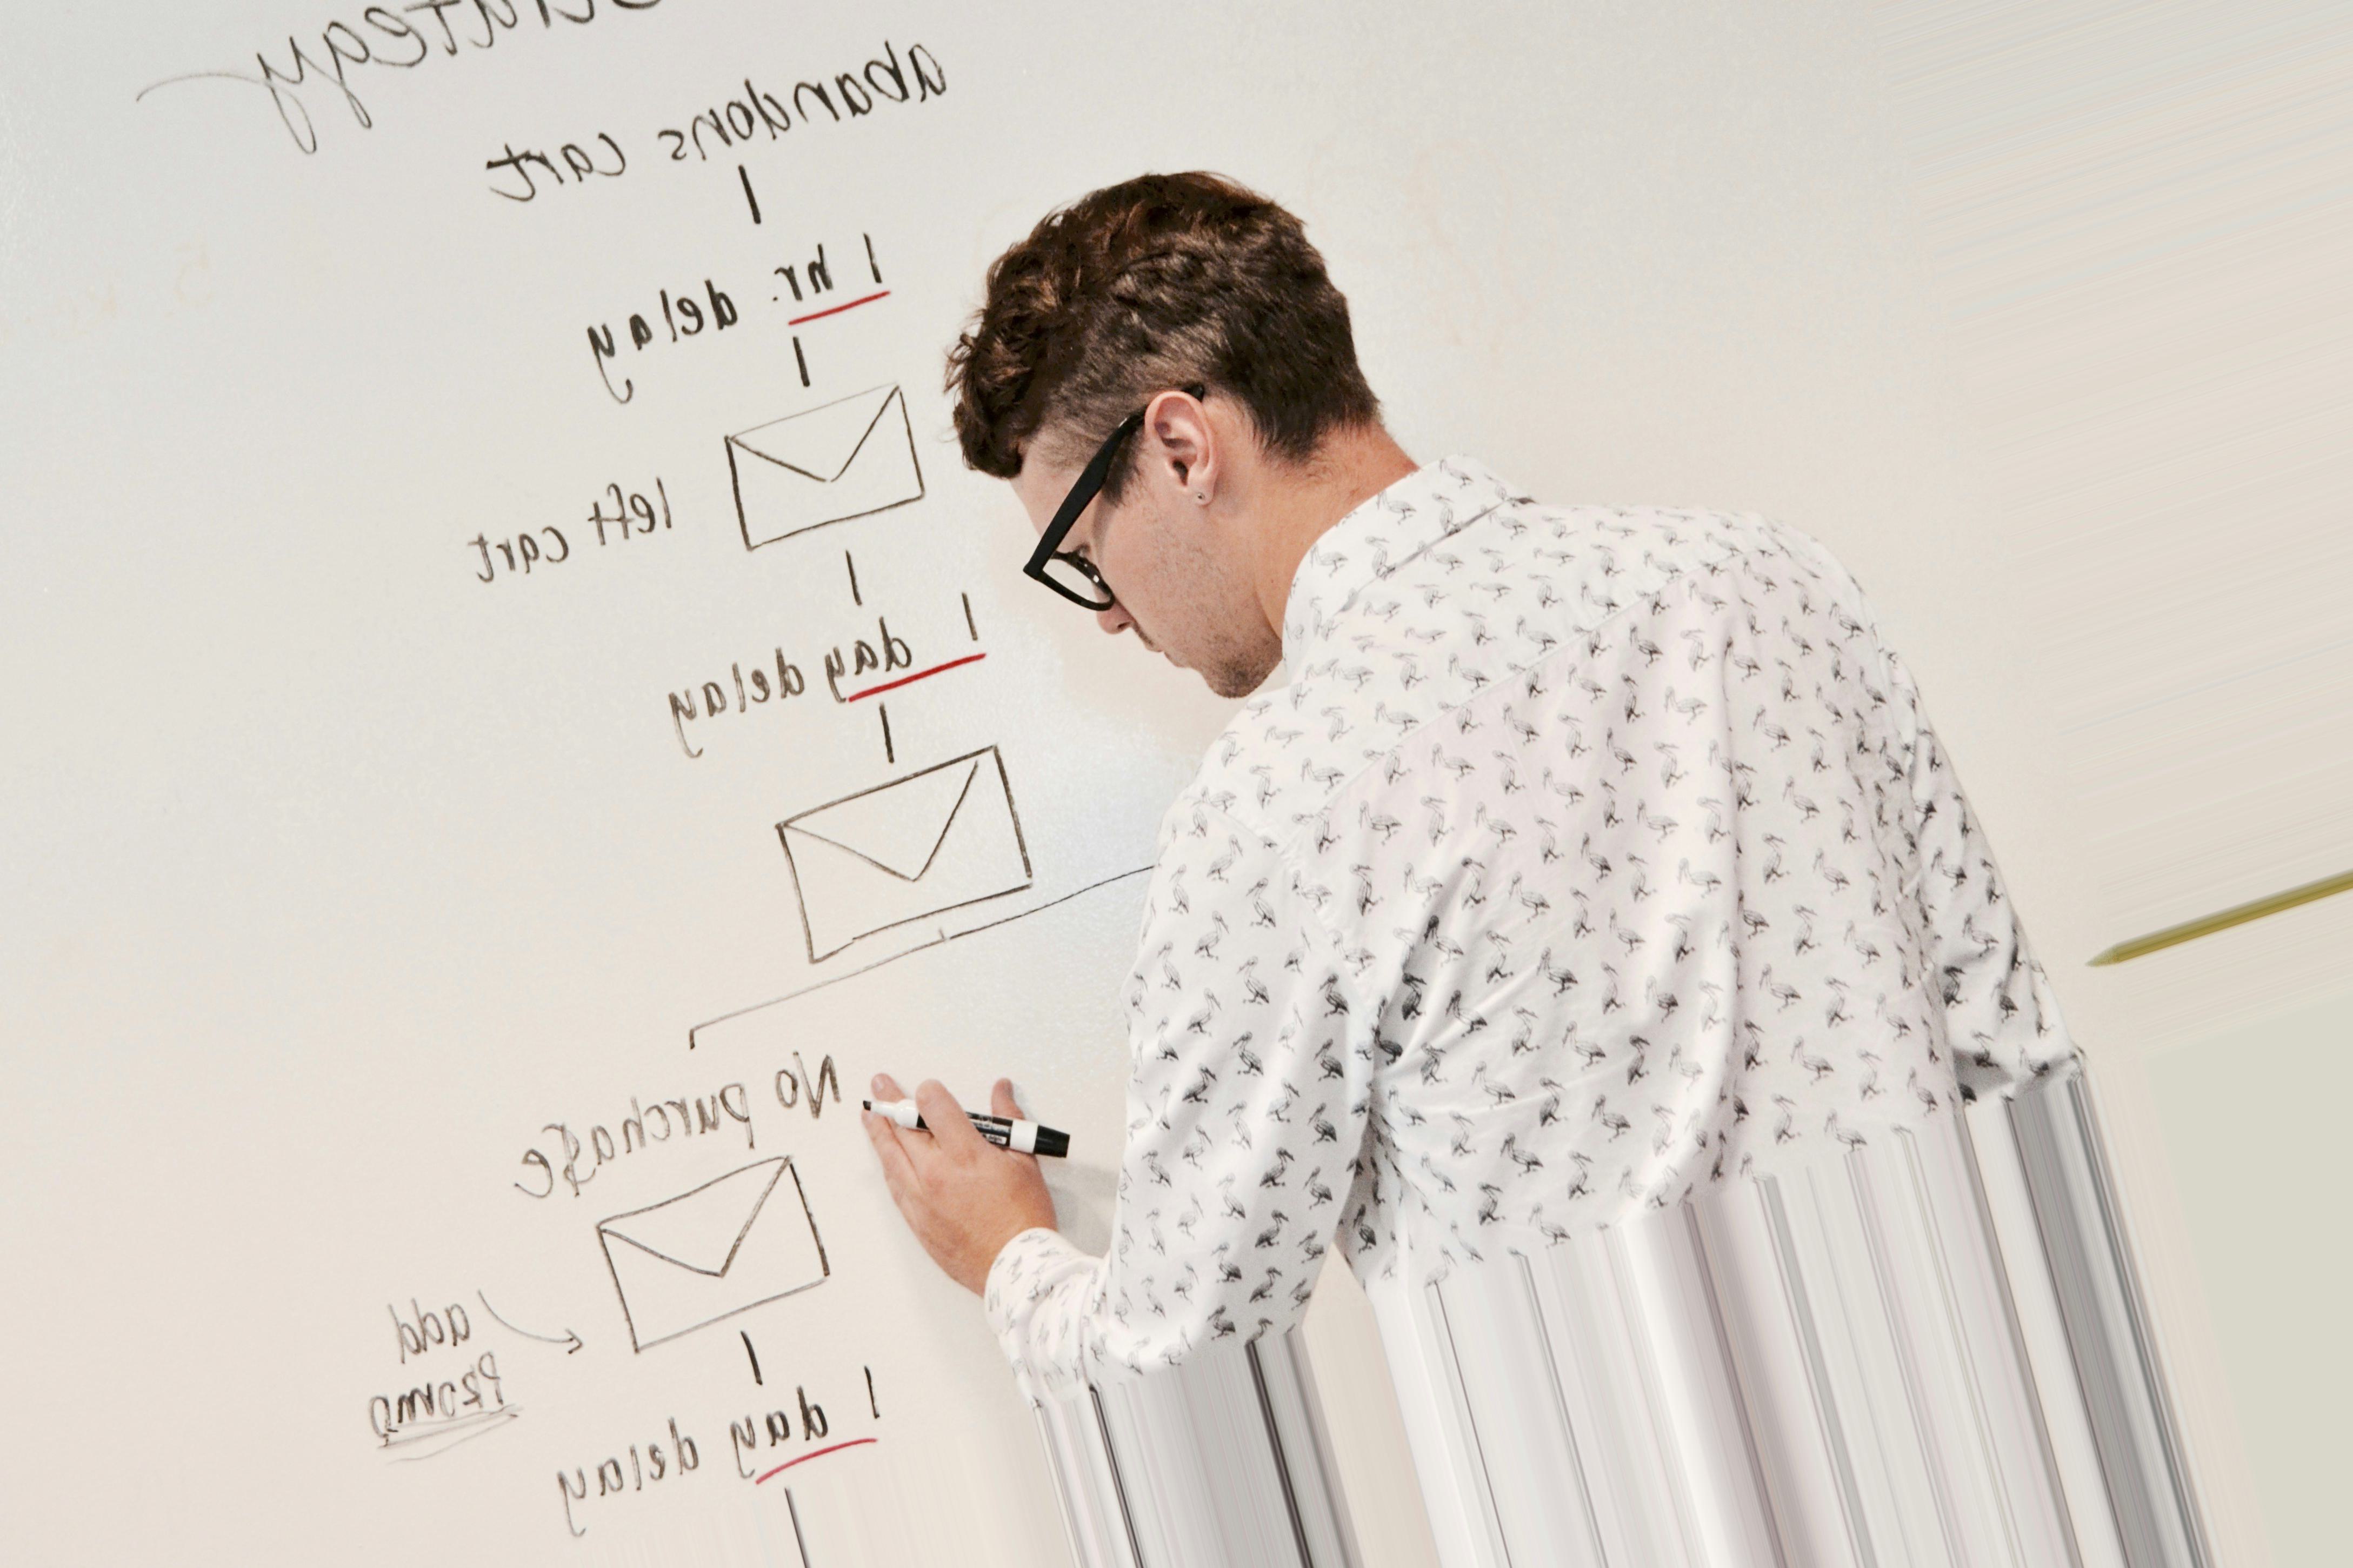 strategy
abandons cart
1 hr. delay
left cart
1 day delay
No purchase
add
PROMO
1 day delay